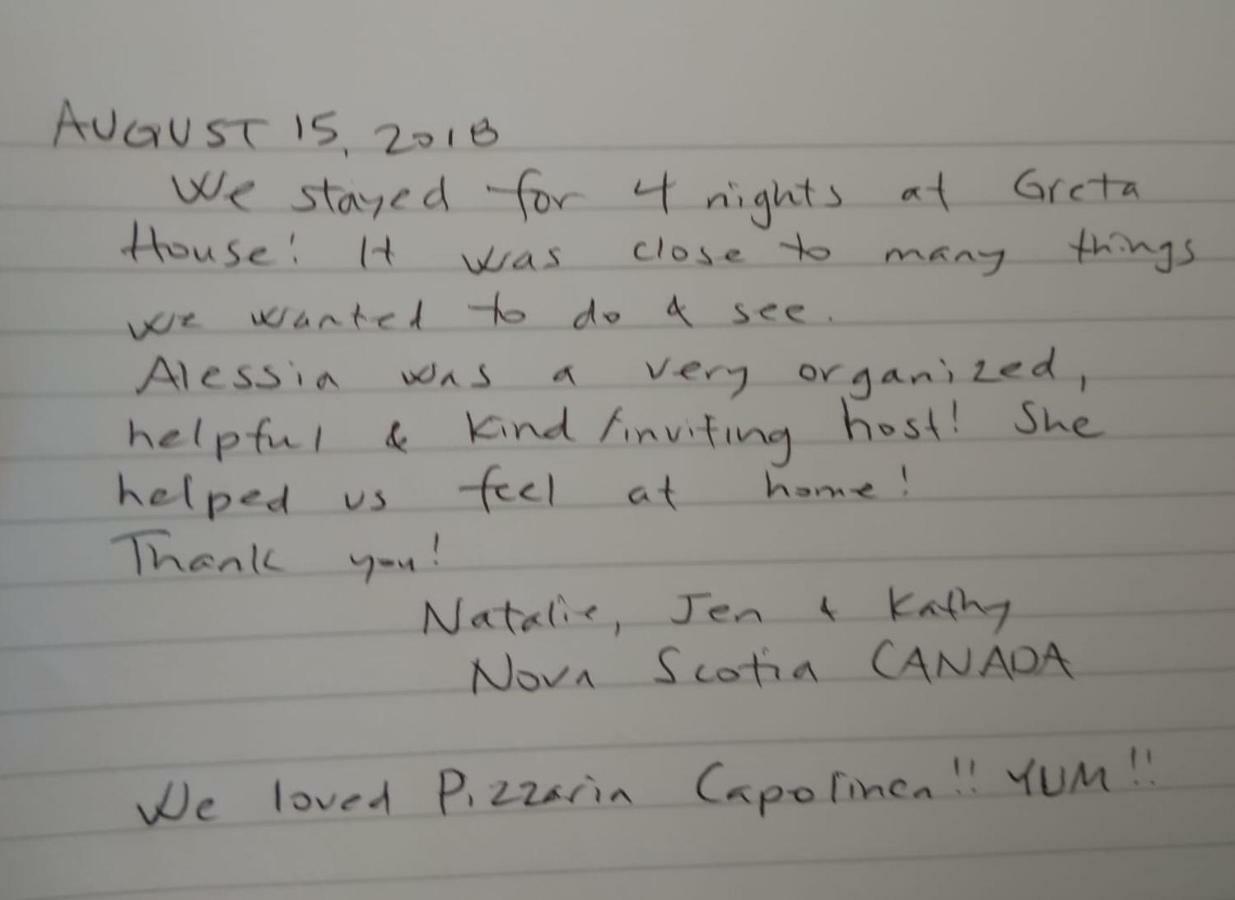 AUGUST 15, 2018
We stayed for 4 nights at Greta
House! It was close to many things
we wanted to do & see.
Alessia was a very organized,
helpful & kind/inviting host! She
helped us feel at home!
Thank you!
Natalie, Jen & Kathy
Nova Scotia CANADA
We loved Pizzaria Capolinea!! YUM!!